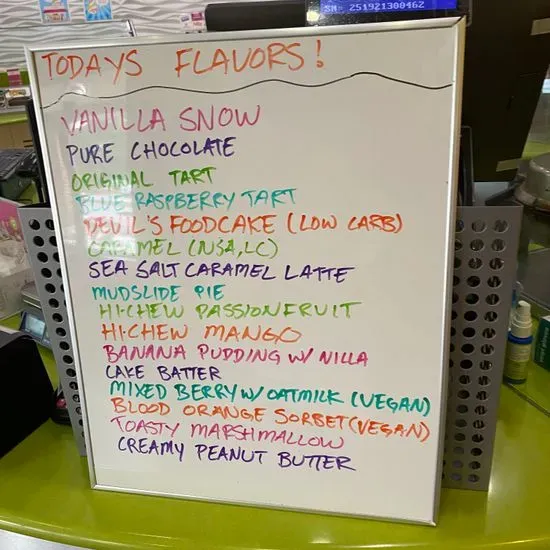 SN: 251921300462
TODAYS FLAVORS!
VANILLA SNOW
PURE CHOCOLATE
ORIGINAL TART
BLUE RASPBERRY TART
DEVIL'S FOODCAKE (LOW CARB)
CARAMEL (NSA,LC)
SEA SALT CARAMEL LATTE
MUDSLIDE PIE
HI-CHEW PASSIONFRUIT
HI-CHEW MANGO
BANANA PUDDING W/ NILLA
CAKE BATTER
MIXED BERRY W/ OATMILK (VEGAN)
BLOOD ORANGE SORBET (VEGAN)
TOASTY MARSHMALLOW
CREAMY PEANUT BUTTER